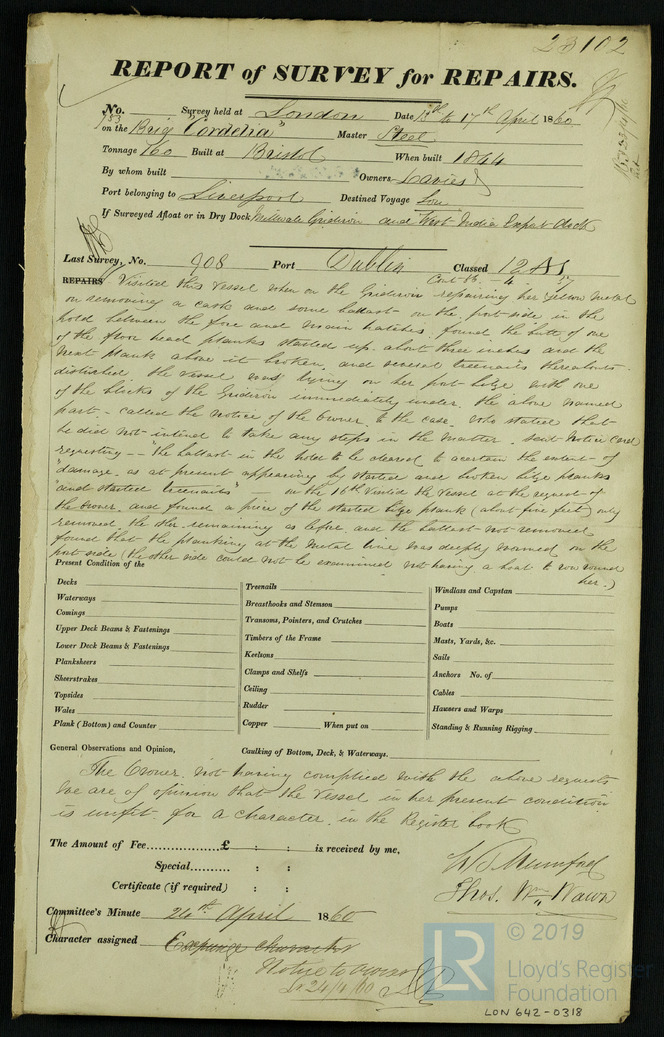 23102
REPORT of SURVEY for REPAIRS.
No. 153 Survey held at London Date 13th to 17th April 1860
on the Brig "Cordelia" Master Steel
Tonnage 160 Built at Bristol When built 1844
By whom built Owners Davies
Port belonging to Liverpool Destined Voyage
If Surveyed Afloat or in Dry Dock Millwall Gridiron and West India Export dock
Last Survey, No. 908 Port Dublin Classed 12 A1
Cont 4 57
REPAIRS Visited this vessel when on the Gridiron repairing her yellow metal
on removing a cask and some ballast on the port side in the
hold between the fore and main hatches found the butt of one
of the floor head planks started up about three inches and the
next plank above it broken and several treenails thereabouts
disturbed the vessel was lying on her port bilge with one
of the blocks of the Gridiron immediately under the above named
part - called the notice of the Owner to the case who stated that
he did not intend to take any steps in the matter. sent notice card
requesting - "the ballast in the hold to be cleared to acertain the extent of
"damage as at present appearing by started and broken bilge planks
"and started treenails" - on the 16th visited the vessel at the request of
the Owner and found a piece of the started bilge plank (about five feet) only
removed the remaining as before and the ballast not removed
found that the planking at the metal line was deeply wormed on the
port side (the other side could not be examined not having a boat to row round
her.)
Present Condition of the
Decks
Waterways
Comings
Upper Deck Beams & Fastenings
Lower Deck Beams & Fastenings
Planksheers
Sheerstrakes
Topsides
Wales
Plank (Bottom) and Counter
Treenails
Breasthooks and Stemson
Transoms, Pointers, and Crutches
Timbers of the Frame
Keelsons
Clamps and Shelfs
Ceiling
Rudder
Copper When put on
Windlass and Capstan
Pumps
Boats
Masts, Yards, &c.
Sails
Anchors No. of
Cables
Hawsers and Warps
Standing & Running Rigging
General Observations and Opinion, Caulking of Bottom, Deck, & Waterways.
The Owner not having complied with the above requests
we are of opinion that the Vessel in her present condition
is unfit for a character in the Register book
The Amount of Fee £ : : is received by me,
Special : :
Certificate (if required) : :
W S Mumford
Thos. Wm Wawn
Committee's Minute 24th April 1860
Character assigned Expunge character
Notice to Owner
24/4/60
LR © 2019
Lloyd's Register
Foundation
LON 642-0318